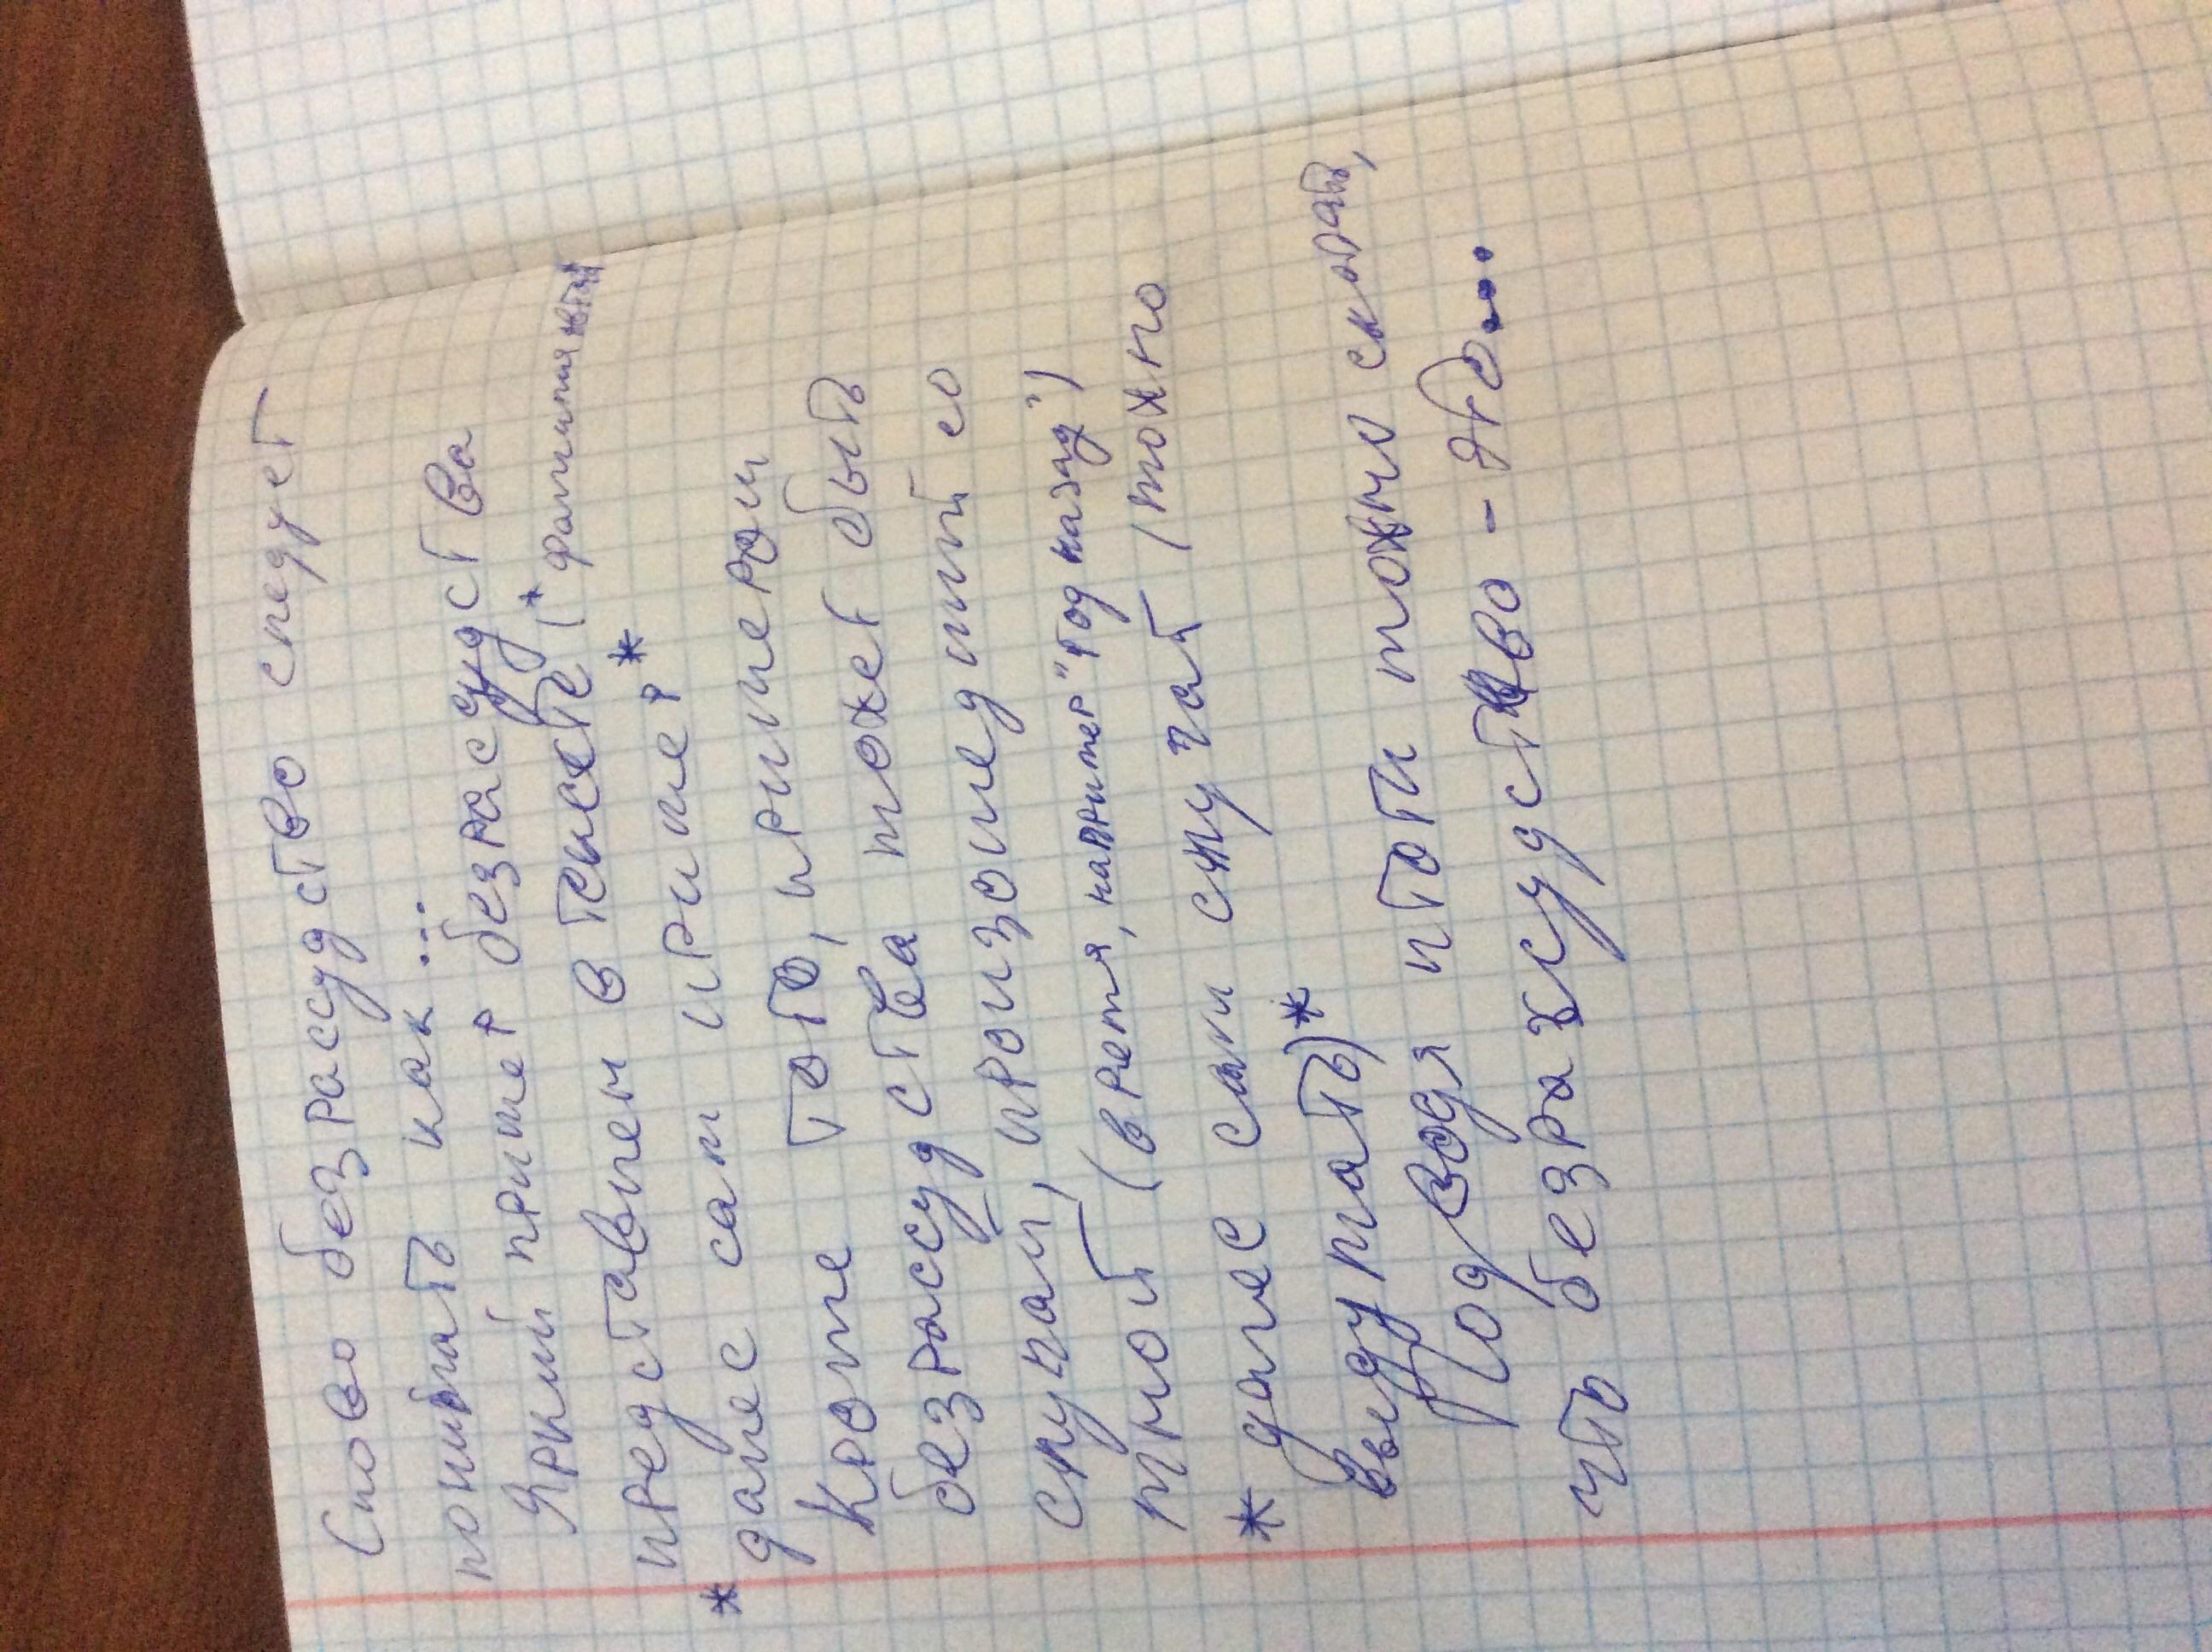 Слово безрассудство следует
понимать как ...
Яркий пример безрассудства
представлен в тексте (* фамилия
* далее сам пример *
Кроме того, примером
безрассудства может быть
случай, произошедший со
мной (время, например "год назад")
* далее сам случай /можно
выдумать)*
Подводя итоги можно сказать,
что безрассудство - это...